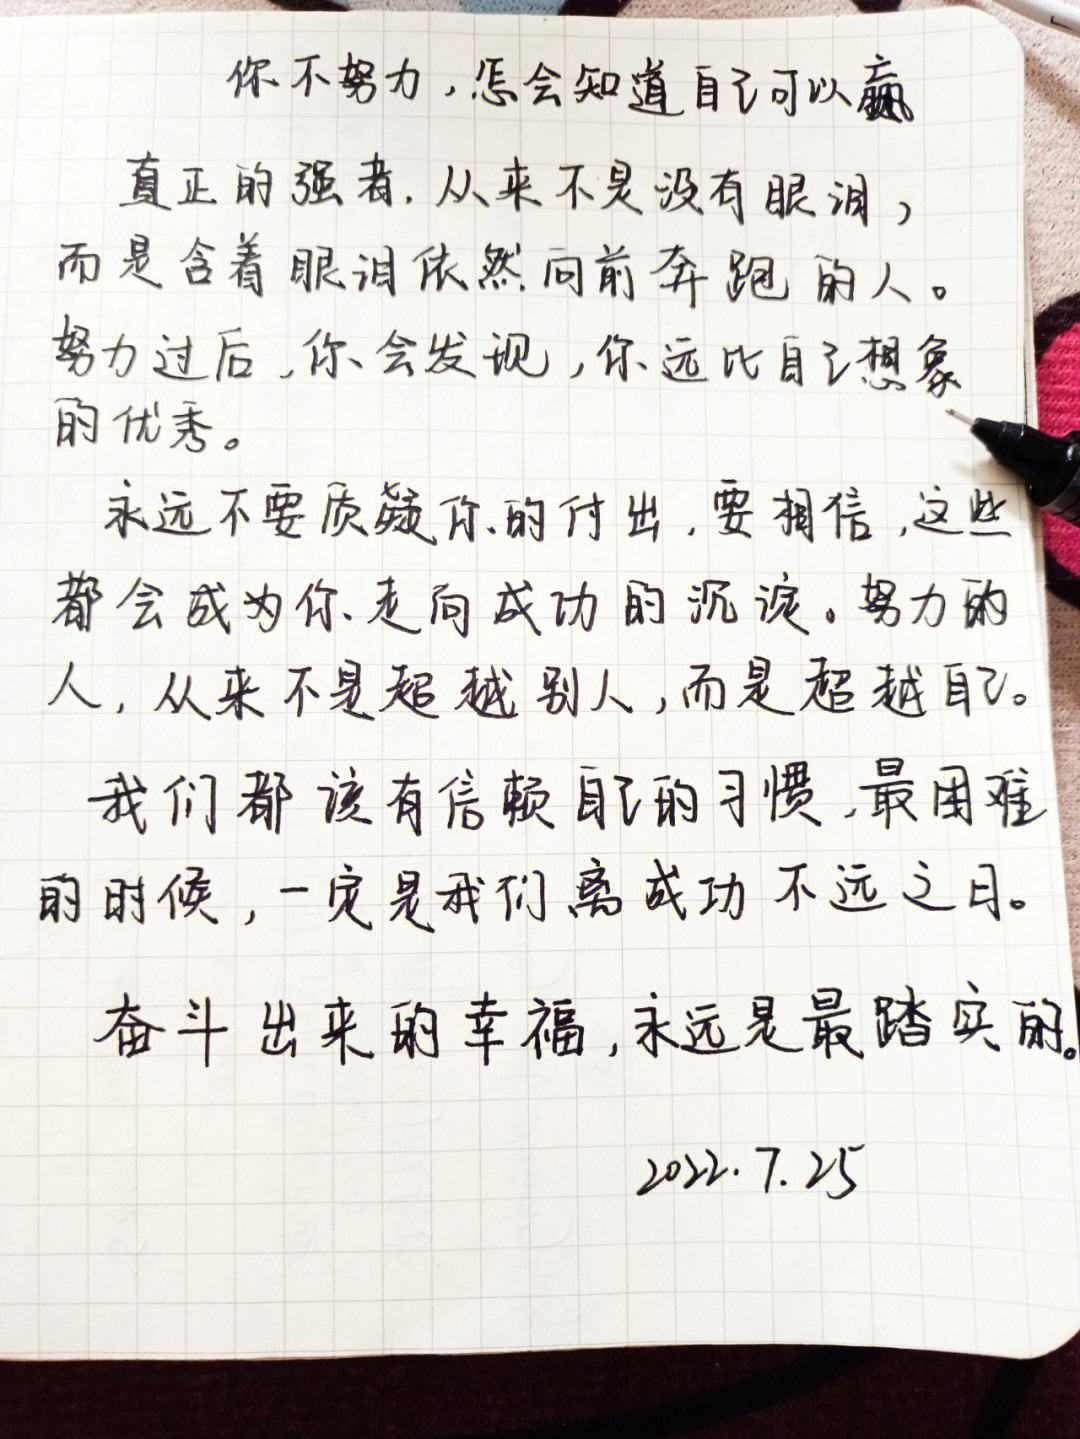 你不努力，怎会知道自己可以赢
真正的强者，从来不是没有眼泪，
而是含着眼泪依然向前奔跑的人。
努力过后，你会发现，你远比自己想象
的优秀。
永远不要质疑你的付出，要相信，这些
都会成为你走向成功的沉淀。努力的
人，从来不是超越别人，而是超越自己。
我们都该有信赖自己的习惯，最困难
的时候，一定是我们离成功不远之日。
奋斗出来的幸福，永远是最踏实的。
2022.7.25